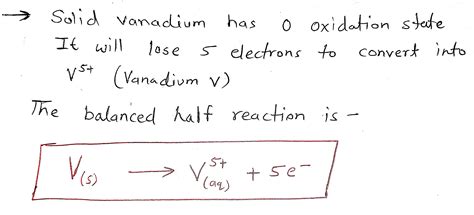 → Solid vanadium has 0 oxidation state
It will lose 5 electrons to convert into
V⁵⁺ (Vanadium V)
The balanced half reaction is -
V(s) → V⁵⁺(aq) + 5e⁻